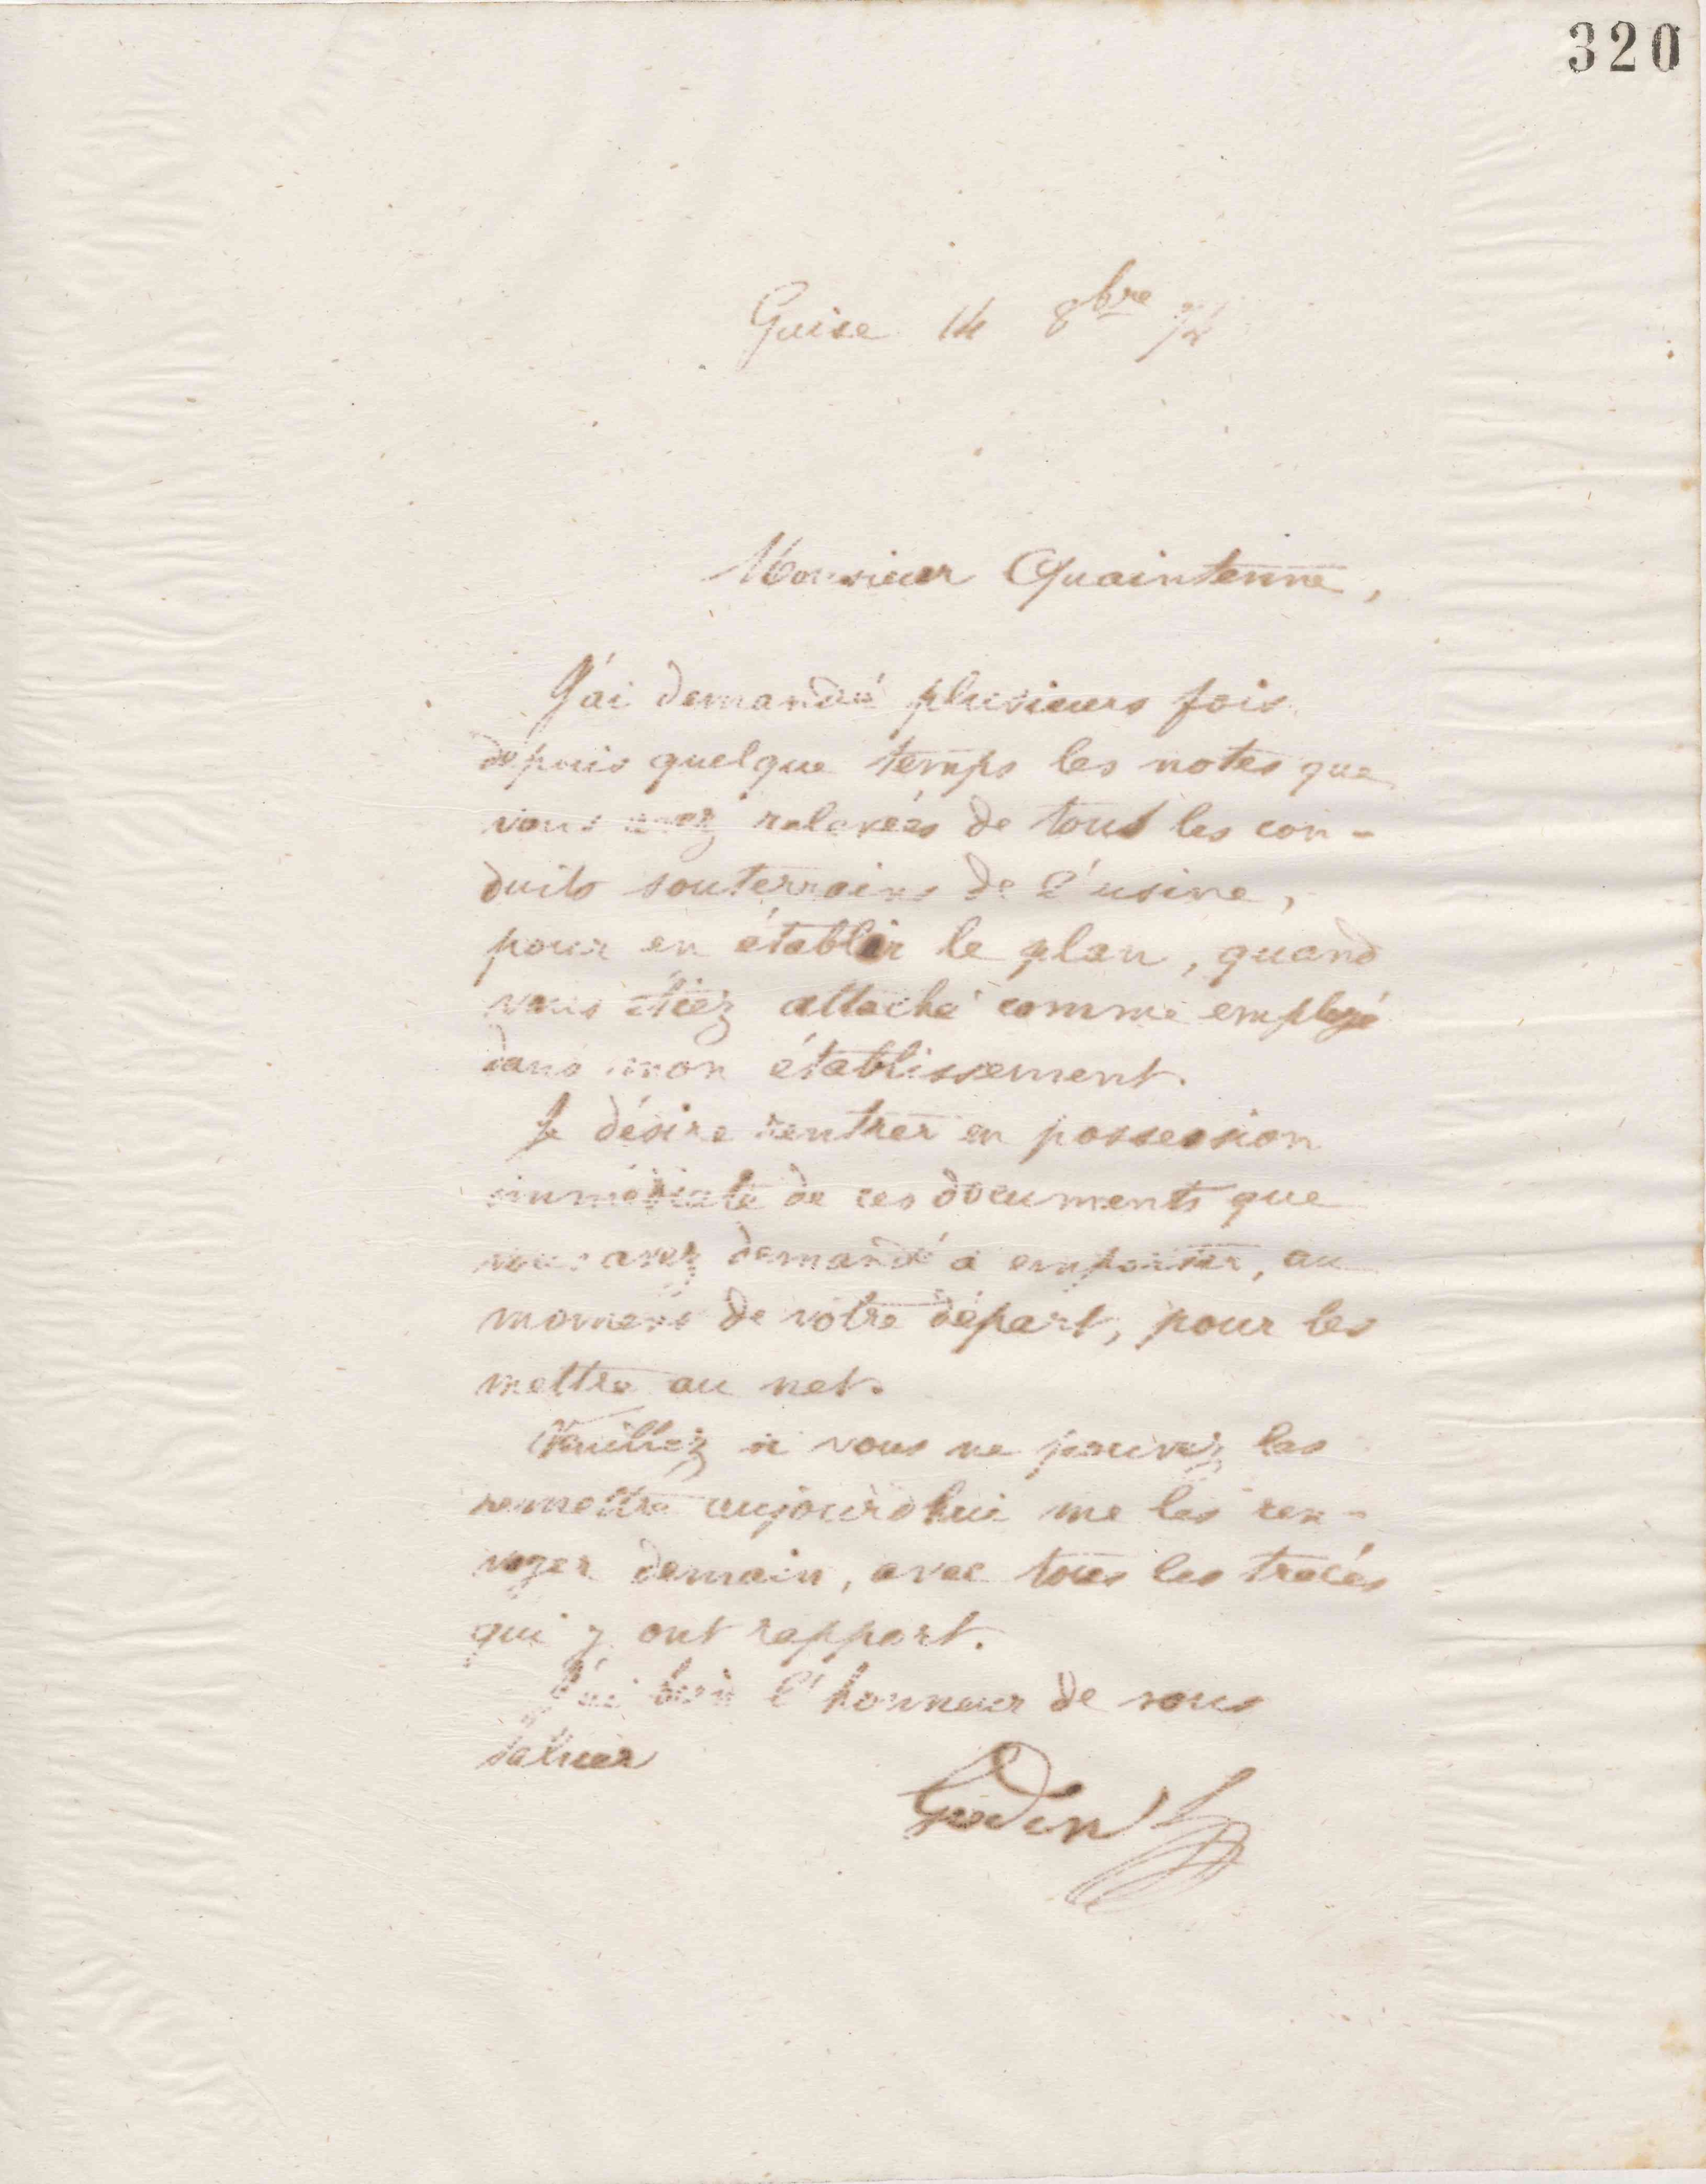 320
Guise 14 8bre 74
Monsieur Quaintenne,
J'ai demandé plusieurs fois
depuis quelque temps les notes que
vous avez relevées de tous les con-
duits souterrains de l'usine,
pour en établir le plan, quand
vous étiez attaché comme employé
dans mon établissement.
Je désire rentrer en possession
immédiate de ces documents que
vous avez demandé à emporter, au
moment de votre départ, pour les
mettre au net.
Veuillez si vous ne pouvez les
remettre aujourdhui me les ren-
voyer demain, avec tous les tracés
qui y ont rapport.
J'ai bien l'honneur de vous
saluer
Godin